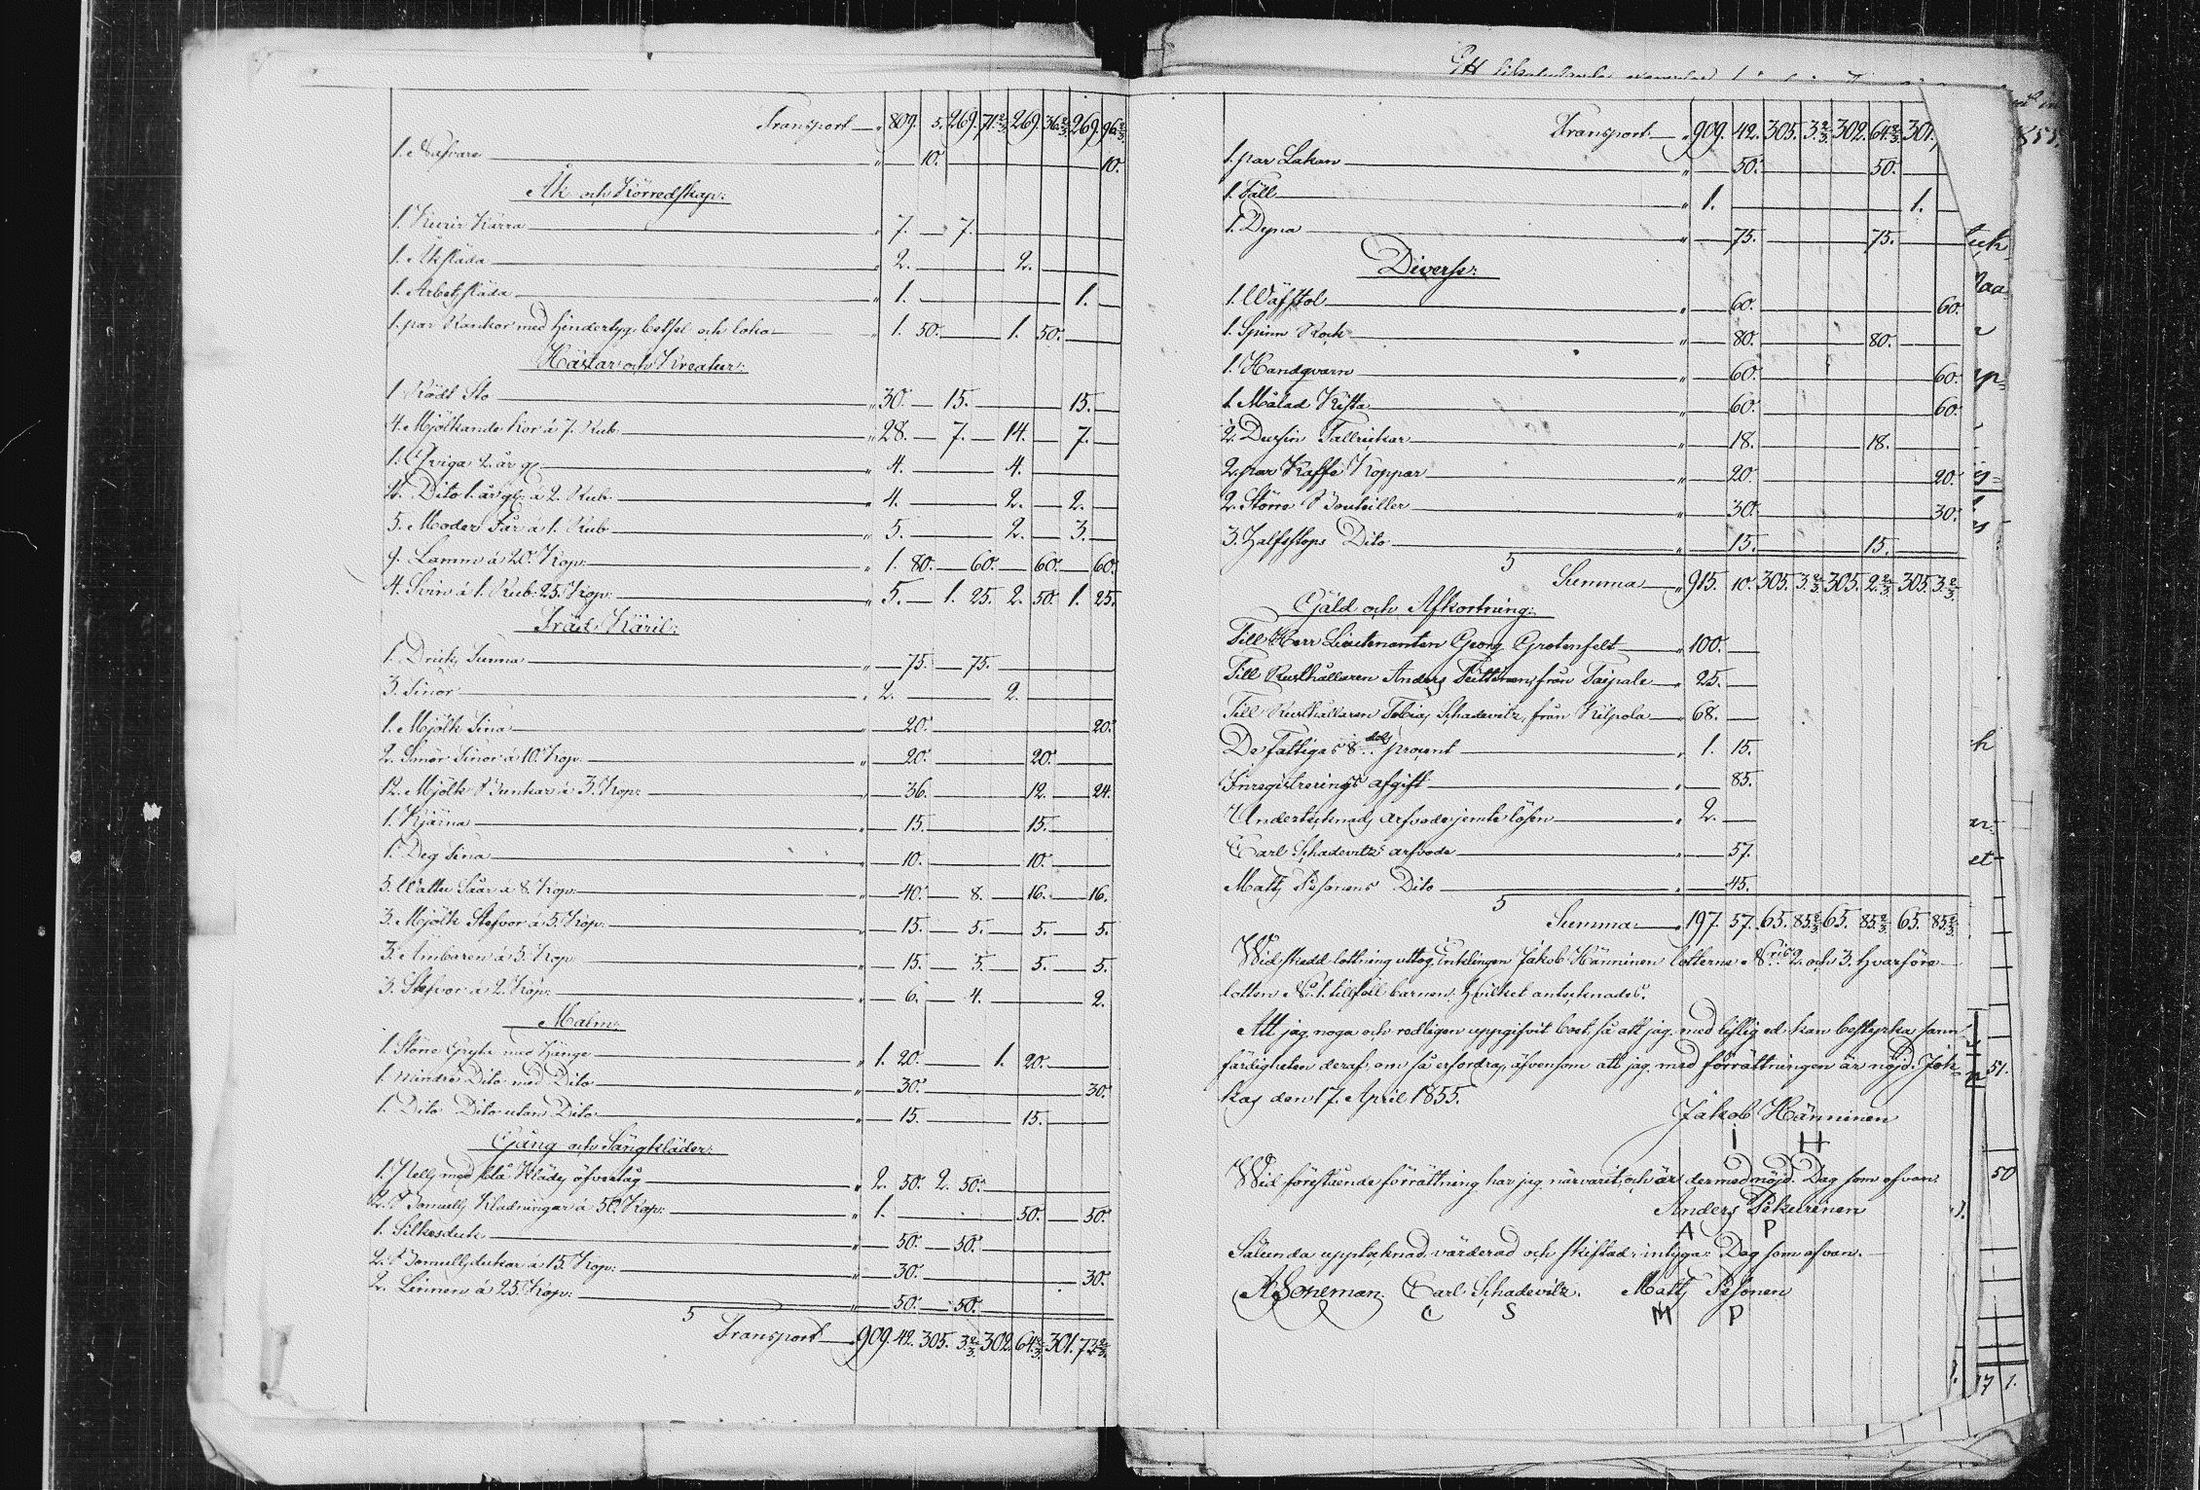 Transport — " 809. 5. 269. 71 2/3. 269. 36 2/3. 269. 96 2/3.
1. Nafvare — " — 10. — 10.
Åk och Körredskap:
1. Kurir Kärra — " 7. — 7.
1. Åksläda — " 2. — 2.
1. Arbetssläda — " 1. — 1. —
1. par Rankor med hindertyg, betsel och loka — " 1. 50. — 1. 50. —
Hästar och Kreatur:
1 Rödt Sto — " 30. — 15. — 15. —
4. Mjölkande Kor á 7. Rub. — " 28. — 7. — 14. — 7. —
1. Qviga 2. år gl. — " 4. — 4. —
2. Dito 1. år gl. á 2. Rub. — " 4. — 2. — 2. —
5. Moder Får á 1. Rub. — " 5. — 2. — 3. —
9. Lamm á 20. Kop. — " 1. 80. — 60. — 60. — 60.
4. Svin á 1. Rub. 25. Kop. — " 5. — 1. 25. 2. 50. 1. 25.
Träd Käril:
1. Dricks Tunna — " — 75. — 75. —
3. Tinor — " 2. — 2. —
1. Mjölk Tina — " — 20. — 20.
2. Smör Tinor á 10. Kop. — " — 20. — 20. —
12. Mjölk Bunkar á 3. Kop. — " — 36. — 12. — 24.
1. Kjärna — " — 15. — 15. —
1. Deg Tina — " — 10. — 10. —
5. Vatten Såar á 8. Kop. — " — 40. — 8. — 16. — 16.
3. Mjölk Stäfvor á 5. Kop. — " — 15. — 5. — 5. — 5.
3. Ämbaren á 5. Kop. — " — 15. — 5. — 5. — 5.
3. Stäfvor á 2. Kop. — " — 6. — 4. — 2.
Malm:
1. Större Gryta med hänge — " 1. 20. — 1. 20. —
1. mindre Dito med Dito — " — 30. — 30.
1. Dito Dito utan Dito — " — 15. — 15. —
Gång och Sängkläder:
1. med blå Klädes öfvertåg — " 2. 50. 2. 50. —
2. Bomulls Kladningar á 50. Kop. — " 1. — 50. — 50.
1. Silkesduk — " — 50. — 50. —
2. Bomullsdukar á 15. Kop. — " — 30. — 30.
2. Linnen á 25. Kop. — " — 50. — 50. —
S Transport — 909. 42. 305. 3 2/3. 302. 64 2/3. 301. 73 2/3.
Transport — " 909. 42. 305. 3 2/3. 302. 64 2/3. 301.
1. par Lakan — " — 50. — 50. —
1. Fäll — " 1. — 1. —
1. Dyna — " — 75. — 75. —
Diverse:
1. Wäfstol — " — 60. — 60.
1. Spinn Rock — " — 80. — 80. —
1. Handqvarn — " — 60. — 60.
1. Målad Kista — " — 60. — 60.
2. Dussin Tallrickar — " — 18. — 18. —
2. par Kaffe Koppar — " — 20. — 20.
2. Större Bouteiller — " — 30. — 30.
3. halfstops Dito — " — 15. — 15. —
S Summa — 915. 10. 305. 3 2/3. 305. 2 2/3. 305. 3 2/3.
Gäld och Afkortning:
Till Herr Lieutenanten Georg Grotenfelt — " 100. —
Till Rusthållaren Anders från Taipale — " 25. —
Till Rusthållaren Tobias Schadevitz, från Kilpola — " 68. —
De Fattigas 8. dels procent — " 1. 15.
Inregistrerings afgift — " — 85.
Undertecknads arfvode jemte lösen — " 2. —
Carl Schadevitz arfvode — " — 57.
Matts Pesonens Dito — " — 45.
S Summa — " 197. 57. 65. 85 2/3. 65. 85 2/3. 65. 85 2/3.
Wid skedd lottning uttog Enklingen Jakob Hänninen lotterne Nris 2. och 3. hvarföre
lotten No. 1. tillföll barnen. hvilket antecknades.
Att jag noga och redligen uppgifvit boet, så att jag med liflig ed kan bestyrka sann-
färdigheten deraf, om så erfordras, äfvensom att jag med förrättningen är nöjd. Jok-
kas den 17. April 1855.
Jakob Hänninen
I H
Wid förestående förrättning har jag närvarit, och är dermed nöjd. Dag som ofvan.
Anders Pekurinen
A P
Sålunda upptecknad, värderad och skiftad; intyga: Dag som ofvan.
A. Boneman. Carl Schadevitz. Matts Pesonen
C S M P